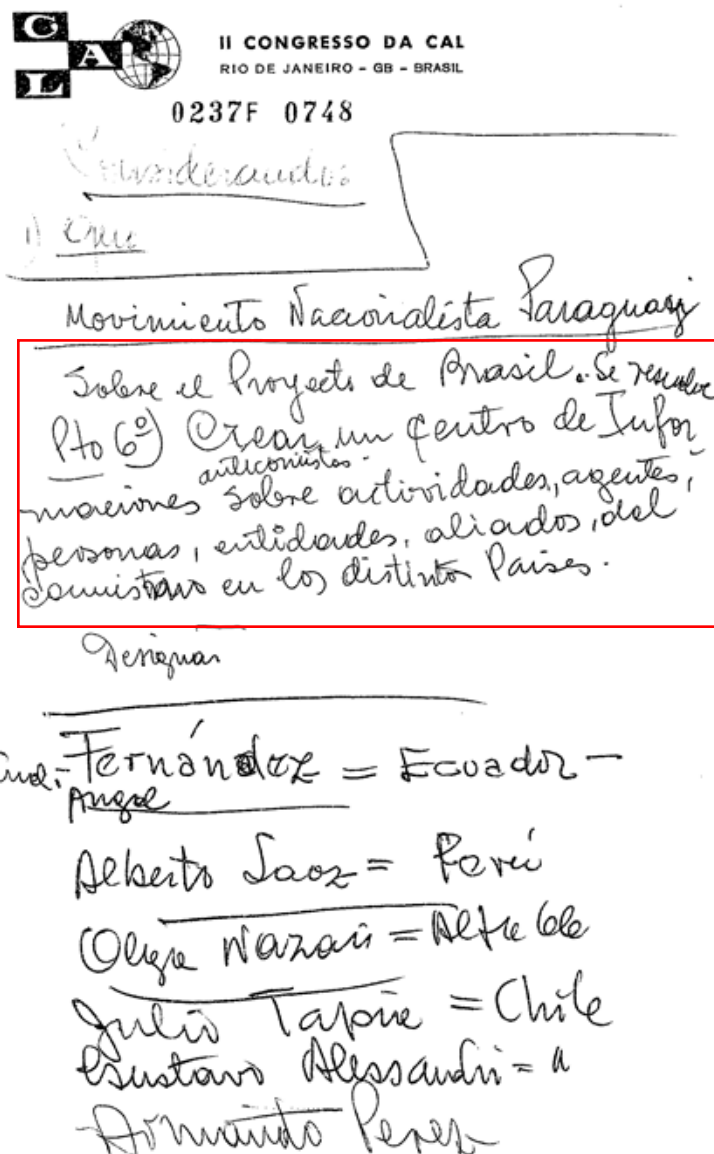 C
A
L
II CONGRESSO DA CAL
RIO DE JANEIRO - GB - BRASIL
0237F 0748
Considerandos
1) Que
Movimiento Nacionalista Paraguay
Sobre el Proyecto de Brasil. Se resuelve
Pto 6º) Crear un Centro de Infor
anticomistas
maciones sobre actividades, agentes,
personas, entidades, aliados, del
comistano en los distintos Paises.
Designar
Fernández = Ecuador -
Angel
Alberto = Perú
Olga =
Julio Tapia = Chile
Gustavo Alessandri = "
Armando Perez